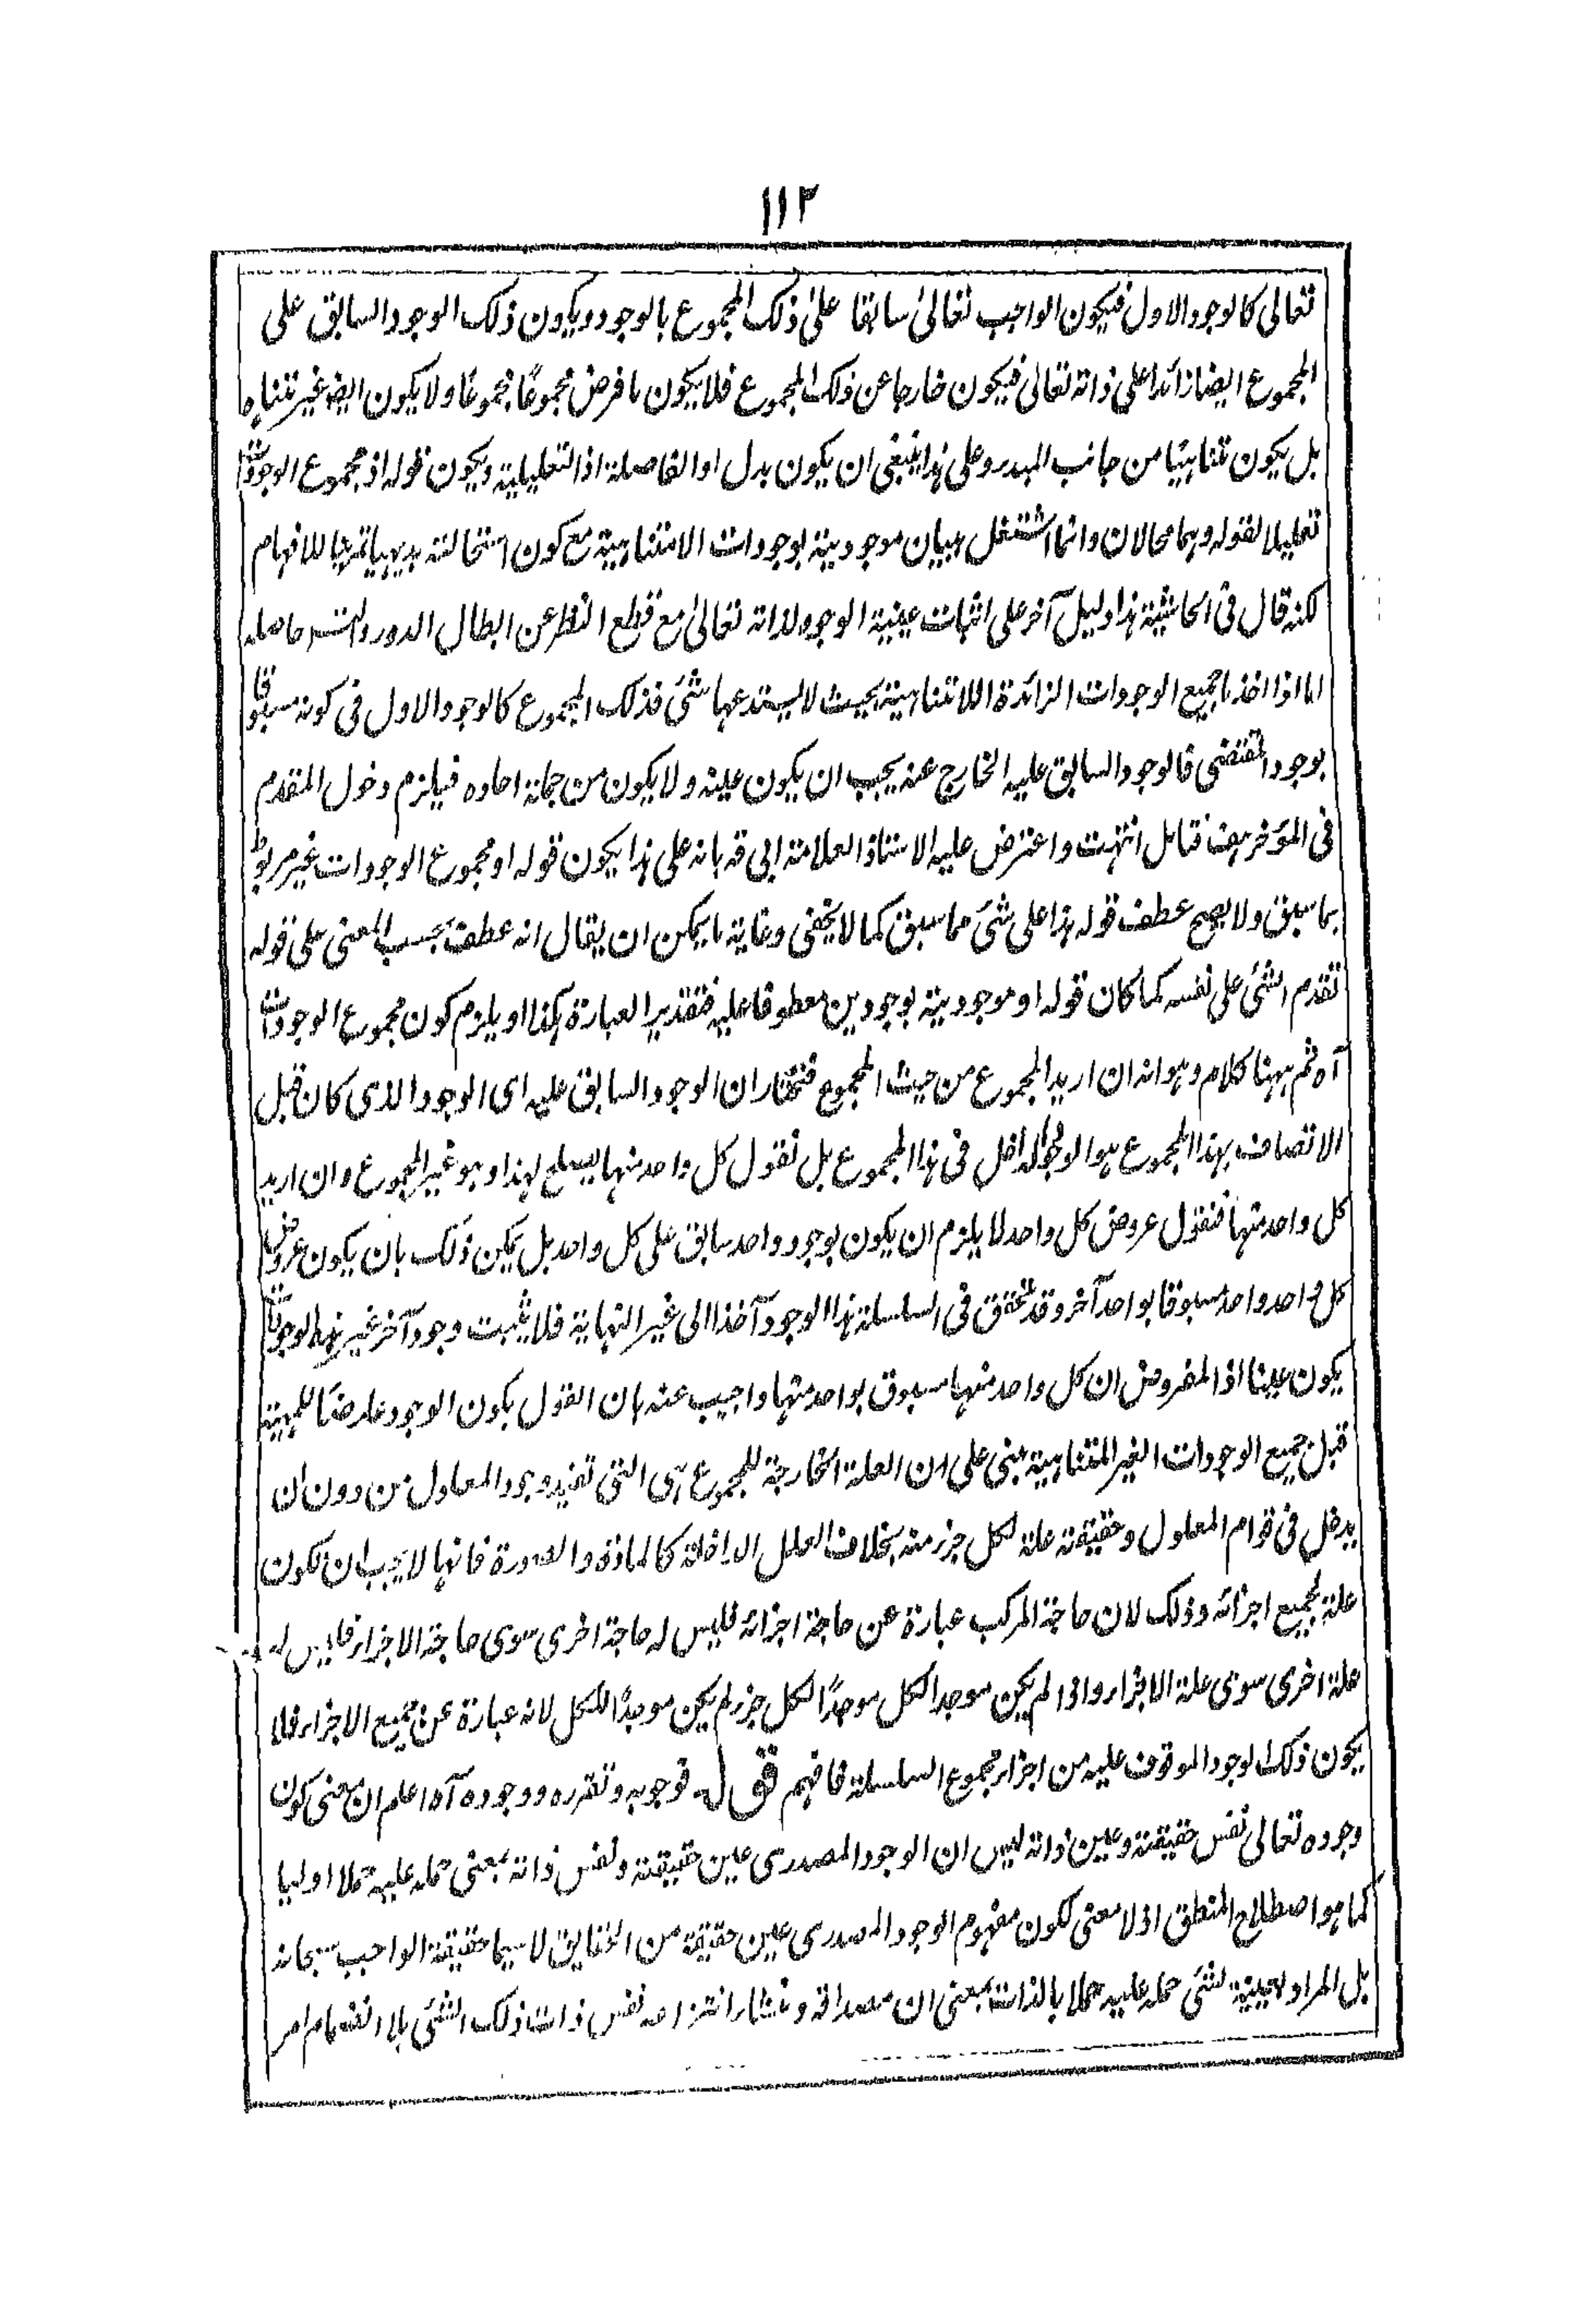 ١١٢
تعالى كالوجود الاول فيكون الواجب تعالىٰ سابقا علىٰ ذلك المجموع بالوجود ويكون ذلك الوجود السابق على
المجموع ايضا زائدا على ذاته تعالى فيكون خارجا عن ذلك المجموع فلا يكون ما فرض مجموعًا مجموعًا ولا يكون ايضا غير متناه
بل يكون متناهيًا من جانب المبدر وعلى هذا ينبغى ان يكون بدل او الفاصلة اذ التعليلية ويكون قوله اذ مجموع الوجودات
تعليلا لقوله وهما محالان وانما اشتغل ببيان موجودية بوجودات لامتناهية مع كون استحالته بديهيا تمرينا للافهام
لكنه قال فى الحاشية هذا دليل آخر على اثبات عينية الوجود لذاته تعالىٰ مع قطع النظر عن ابطال الدور والتسـ حاصله
انا اذا اخذنا جميع الوجودات الزائدة اللامتناهية بحيث لا يستد عنها شئ فذلك المجموع كالوجود الاول فى كونه مسبوقا
بوجود المقتضى فالوجود السابق عليه الخارج عنه يجب ان يكون عينه ولا يكون من جملة احاده فيلزم دخول المقدم
فى المؤخر هف فتامل انتهت واعترض عليه الاستاذ العلامة ابى قه بانه على هذا يكون قوله او مجموع الوجودات غير مربوط
بما سبق ولا يصح عطف قوله هذا على شئ مما سبق كما لا يخفى وغاية ما يمكن ان يقال انه عطف بحسب المعنى على قوله
تقدم الشئ على نفسه كما كان قوله او موجودية بوجودين معطوفا عليه فتقدير العبارة هكذا او يلزم كون مجموع الوجودات
آه ثم ههنا كلام وهو انه ان اريد المجموع من حيث المجموع فنختار ان الوجود السابق عليه اى الوجود الذى كان قبل
الاتصاف بهذا المجموع هو الوجود الداخل فى هذا المجموع بل نقول كل واحد منها يصلح لهذا وهو غير المجموع وان اريد
كل واحد منها فنقول عروض كل واحد لا يلزم ان يكون بوجود واحد سابق على كل واحد بل يمكن ذلك بان يكون عروض
كل واحد واحد مسبوقا بواحد آخر وقد تحقق فى السلسلة هذا الوجود آخذا الى غير النهاية فلا يثبت وجود آخر غير هذه الوجودات
يكون عينا اذ المفروض ان كل واحد منها مسبوق بواحد منها واجيب عنه بان القول بكون الوجود عارضًا للمهية
قبل جميع الوجودات الغير المتناهية مبنى على ان العلة الخارجة للمجموع هى التى تفيد وجود المعلول من دون ان
يدخل فى قوام المعلول وحقيقته علة لكل جزر منه بخلاف العلل الداخلة كالمادة والصورة فانها لا يجب ان تكون
علة لجميع اجزائه وذلك لان حاجة المركب عبارة عن حاجة اجزائه فليس له حاجة اخرى سوى حاجة الاجزار فليس له
علة اخرى سوى علة الاجزار واذا لم يكن موجد الكل موجدًا لكل جزر لم يكن موجدًا للكل لانه عبارة عن جميع الاجزار فلا
يكون ذلك الوجود الموقوف عليه من اجزار مجموع السلسلة فافهم قول فوجوبه وتقرره ووجوده آه اعلم ان معنى كون
وجوده تعالى نفس حقيقته وعين ذاته ليس ان الوجود المصدرى عين حقيقته ونفس ذاته بمعنى حمله عليه حملا اوليا
كما هو اصطلاح المنطق اذ لا معنى لكون مفهوم الوجود المصدرى عين حقيقة من الحقايق لا سيما حقيقة الواجب سبحانه
بل المراد بعينية لشئ حمله عليه حملا بالذات بمعنى ان مصداقه ومنشار انتزاعه نفس ذات ذلك الشئ بلا انضمام امر